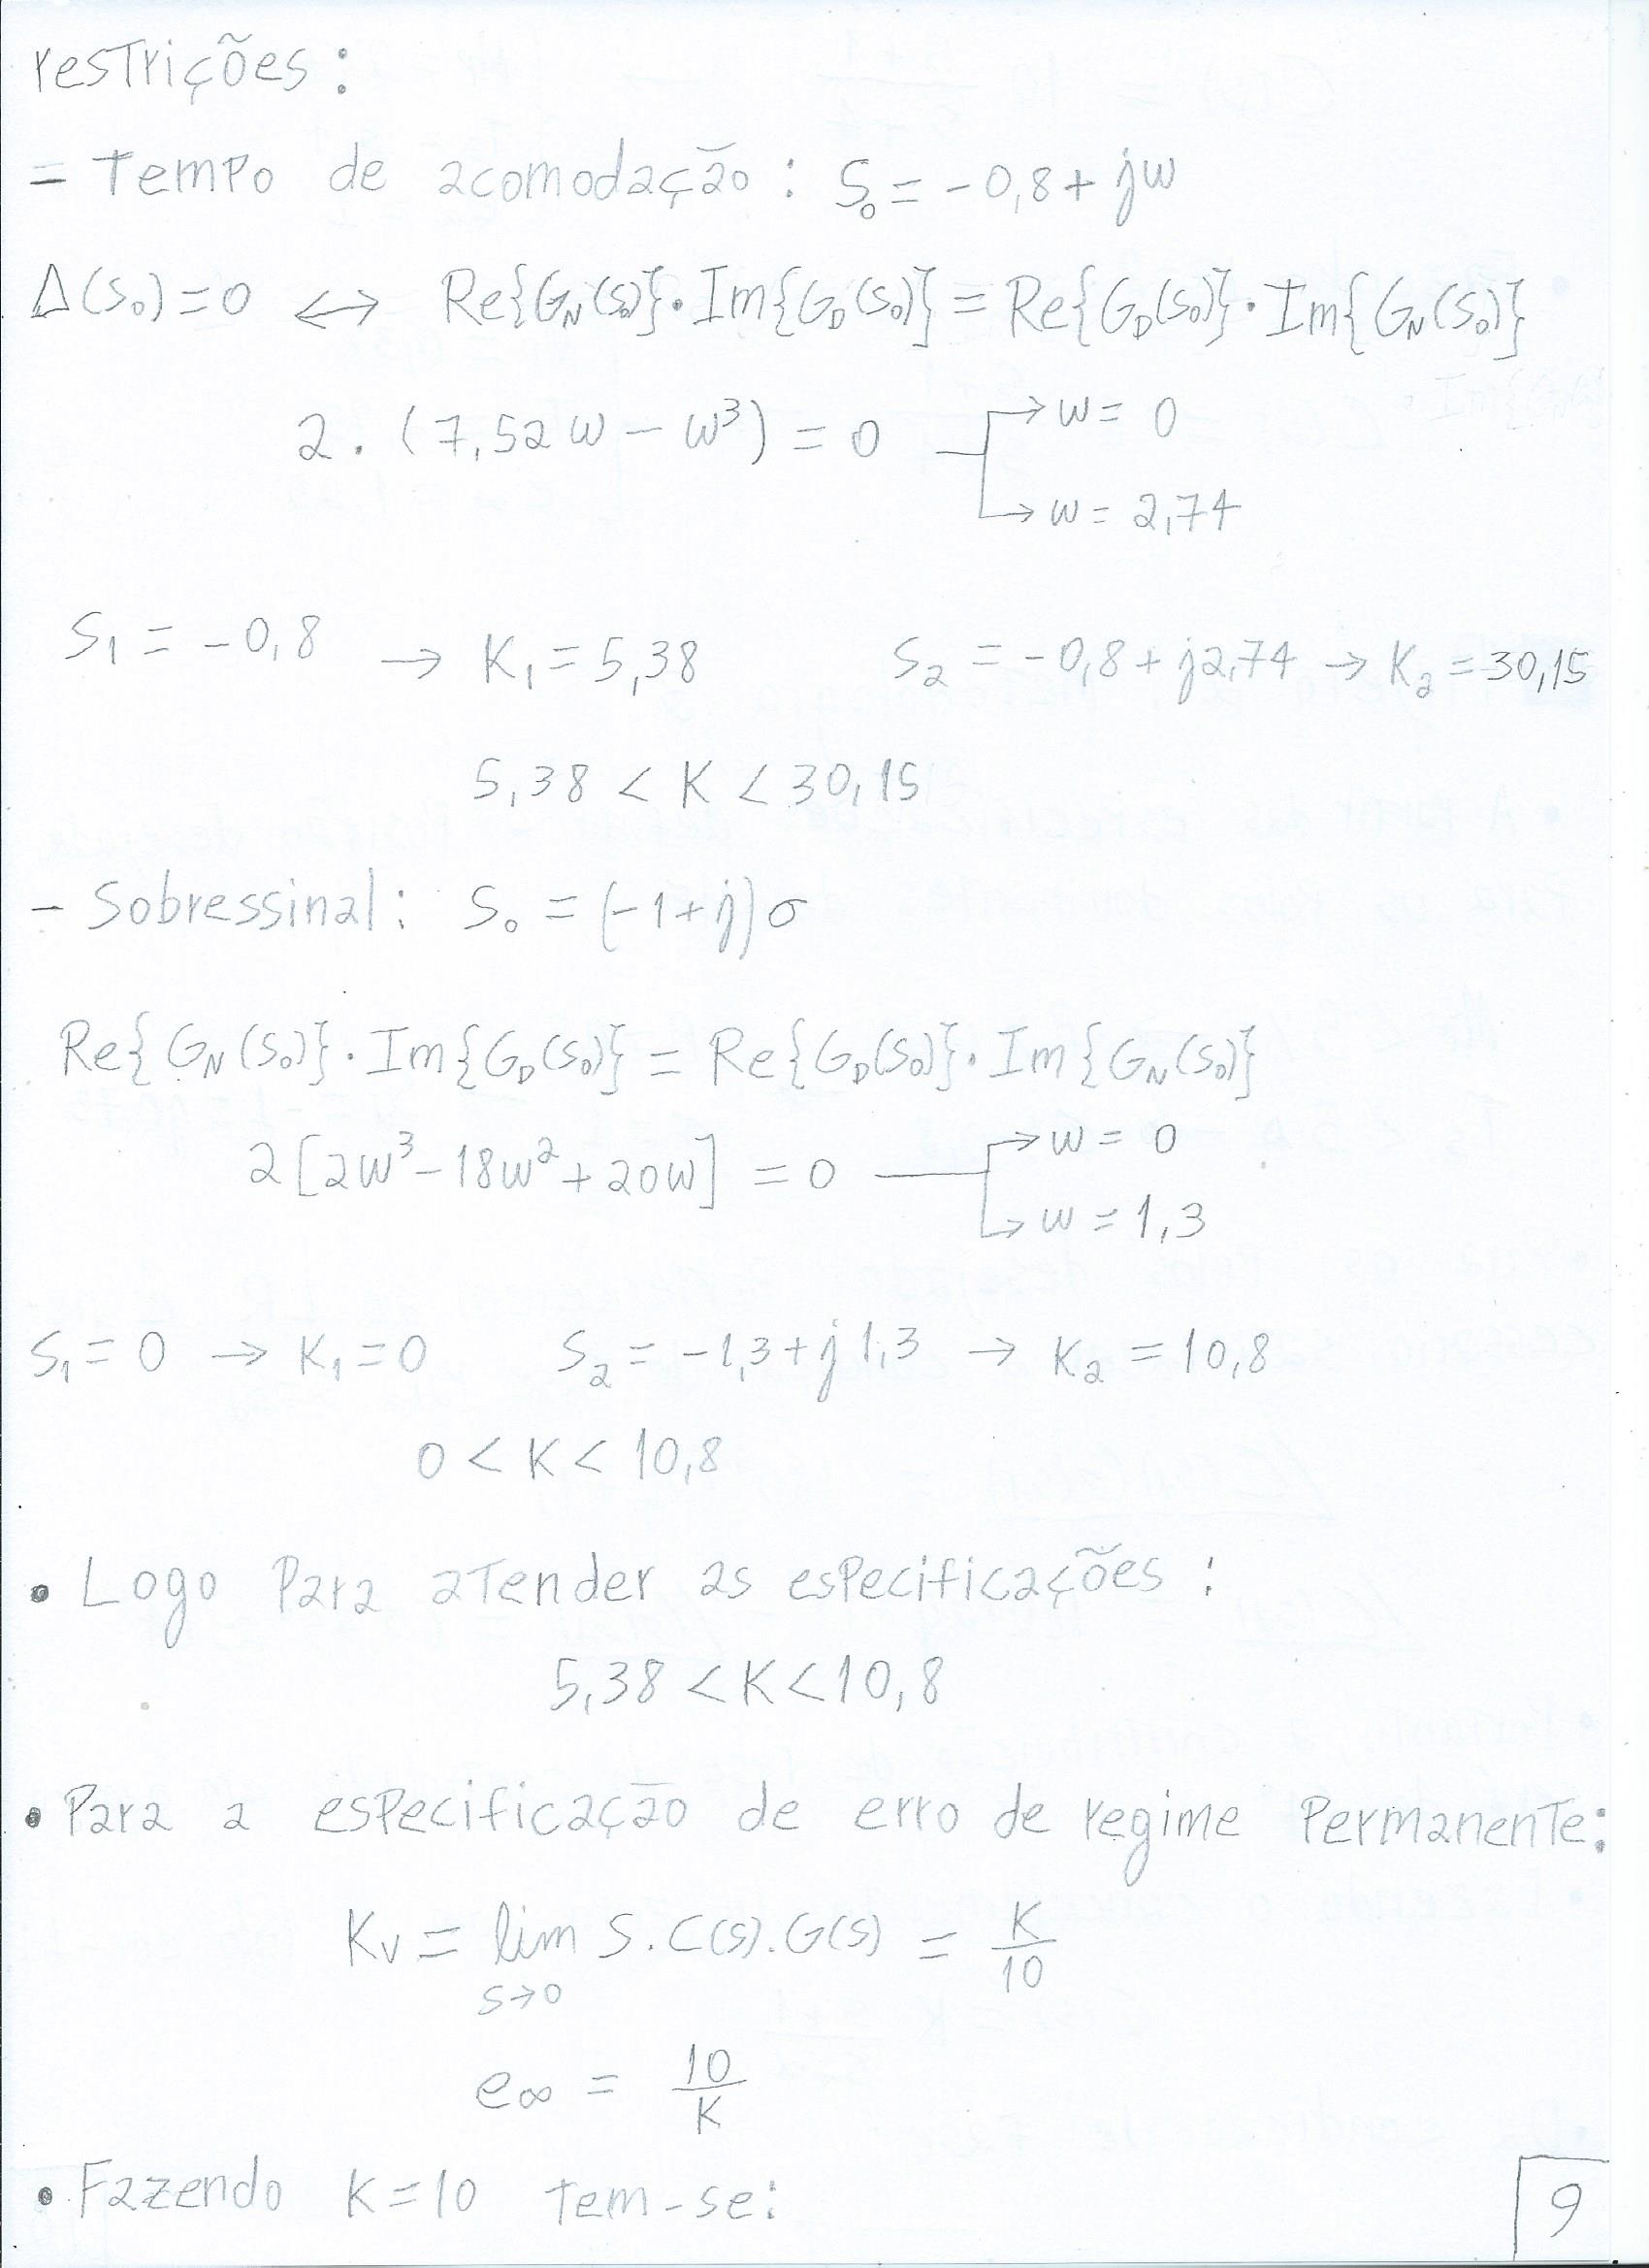 restrições:
= Tempo de acomodação: S₀ = -0,8 + jw
Δ(S₀) = 0 ↔ Re{G_N(S₀)}·Im{G_D(S₀)} = Re{G_D(S₀)}·Im{G_N(S₀)}
2.(7,52w - w³) = 0 → w = 0
→ w = 2,74
S₁ = -0,8 → K₁ = 5,38 S₂ = -0,8 + j2,74 → K₂ = 30,15
5,38 < K < 30,15
- Sobressinal: S₀ = (-1+j)σ
Re{G_N(S₀)}·Im{G_D(S₀)} = Re{G_D(S₀)}·Im{G_N(S₀)}
2[2w³ - 18w² + 20w] = 0 → w = 0
→ w = 1,3
S₁ = 0 → K₁ = 0 S₂ = -1,3 + j1,3 → K₂ = 10,8
0 < K < 10,8
• Logo Para aTender as especificações:
5,38 < K < 10,8
• Para a especificação de erro de regime PermanenTe:
Kv = lim S.C(S).G(S) = K/10
S→0
e∞ = 10/K
• Fazendo K = 10 Tem-se:
9